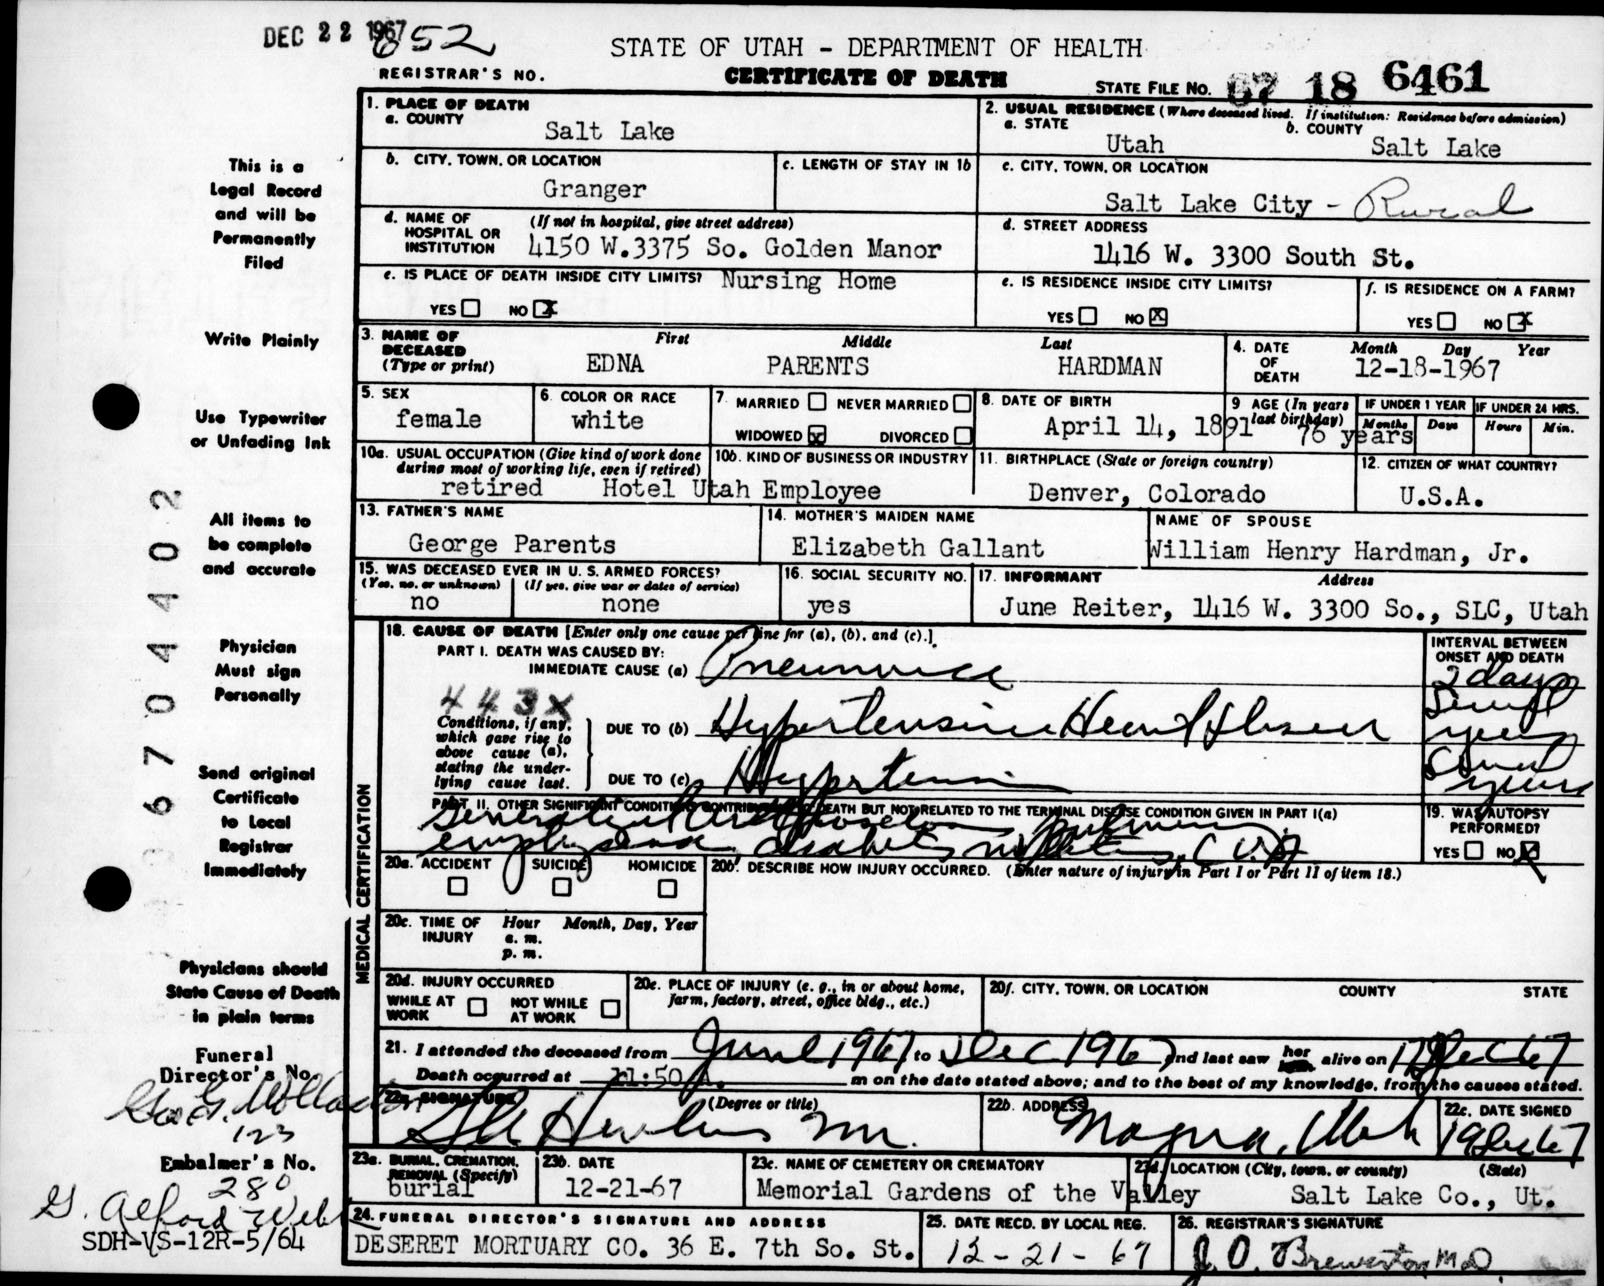 DEC 22 1967
652
REGISTRAR'S NO.
STATE OF UTAH - DEPARTMENT OF HEALTH
CERTIFICATE OF DEATH
STATE FILE NO. 67 18 6461
This is a
Legal Record
and will be
Permanently
Filed
Write Plainly
Use Typewriter
or Unfading Ink
All items to
be complete
and accurate
Physician
Must sign
Personally
Send original
Certificate
to Local
Registrar
Immediately
Physicians should
State Cause of Death
in plain terms
Funeral
Director's No.
123
Embalmer's No.
280
G. Alford Webb
SDH-VS-12R-5/64
67044402
1. PLACE OF DEATH
a. COUNTY
Salt Lake
2. USUAL RESIDENCE (Where deceased lived. If institution: Residence before admission)
a. STATE
Utah
b. COUNTY
Salt Lake
b. CITY, TOWN, OR LOCATION
Granger
c. LENGTH OF STAY IN 1b
c. CITY, TOWN, OR LOCATION
Salt Lake City - Rural
d. NAME OF HOSPITAL OR INSTITUTION
(If not in hospital, give street address)
4150 W.3375 So. Golden Manor
Nursing Home
d. STREET ADDRESS
1416 W. 3300 South St.
e. IS PLACE OF DEATH INSIDE CITY LIMITS?
YES NO X
e. IS RESIDENCE INSIDE CITY LIMITS?
YES NO X
f. IS RESIDENCE ON A FARM?
YES NO X
3. NAME OF DECEASED (Type or print)
First Middle Last
EDNA PARENTS HARDMAN
4. DATE OF DEATH
Month Day Year
12-18-1967
5. SEX
female
6. COLOR OR RACE
white
7. MARRIED NEVER MARRIED
WIDOWED X DIVORCED
8. DATE OF BIRTH
April 14, 1891
9. AGE (In years last birthday)
76 years
IF UNDER 1 YEAR
Months Days
IF UNDER 24 HRS.
Hours Min.
10a. USUAL OCCUPATION (Give kind of work done during most of working life, even if retired)
10b. KIND OF BUSINESS OR INDUSTRY
retired Hotel Utah Employee
11. BIRTHPLACE (State or foreign country)
Denver, Colorado
12. CITIZEN OF WHAT COUNTRY?
U.S.A.
13. FATHER'S NAME
George Parents
14. MOTHER'S MAIDEN NAME
Elizabeth Gallant
NAME OF SPOUSE
William Henry Hardman, Jr.
15. WAS DECEASED EVER IN U. S. ARMED FORCES?
(Yes, no, or unknown) (If yes, give war or dates of service)
no none
16. SOCIAL SECURITY NO.
yes
17. INFORMANT Address
June Reiter, 1416 W. 3300 So., SLC, Utah
MEDICAL CERTIFICATION
18. CAUSE OF DEATH [Enter only one cause per line for (a), (b), and (c).]
PART I. DEATH WAS CAUSED BY:
IMMEDIATE CAUSE (a) Pneumonia
INTERVAL BETWEEN ONSET AND DEATH
2 days
443X
Conditions, if any, which gave rise to above cause (a), stating the underlying cause last.
DUE TO (b) Hypertensive Heart Disease
years
DUE TO (c) Hypertension
years
PART II. OTHER SIGNIFICANT CONDITIONS CONTRIBUTING TO DEATH BUT NOT RELATED TO THE TERMINAL DISEASE CONDITION GIVEN IN PART I(a)
Generalized Arteriosclerosis pulmonary
emphysema diabetes mellitus, CVA
19. WAS AUTOPSY PERFORMED?
YES NO X
20a. ACCIDENT SUICIDE HOMICIDE
20b. DESCRIBE HOW INJURY OCCURRED. (Enter nature of injury in Part I or Part II of item 18.)
20c. TIME OF INJURY
Hour Month, Day, Year
a. m.
p. m.
20d. INJURY OCCURRED
WHILE AT WORK NOT WHILE AT WORK
20e. PLACE OF INJURY (e. g., in or about home, farm, factory, street, office bldg., etc.)
20f. CITY, TOWN, OR LOCATION COUNTY STATE
21. I attended the deceased from June 1967 to Dec 1967 and last saw her alive on 17 Dec 67
Death occurred at 11:50 A. m on the date stated above; and to the best of my knowledge, from the causes stated.
22a. SIGNATURE (Degree or title)
22b. ADDRESS
Magna, Utah
22c. DATE SIGNED
19 Dec 67
23a. BURIAL, CREMATION, REMOVAL (Specify)
burial
23b. DATE
12-21-67
23c. NAME OF CEMETERY OR CREMATORY
Memorial Gardens of the Valley
23d. LOCATION (City, town, or county) (State)
Salt Lake Co., Ut.
24. FUNERAL DIRECTOR'S SIGNATURE AND ADDRESS
DESERET MORTUARY CO. 36 E. 7th So. St.
25. DATE RECD. BY LOCAL REG.
12-21-67
26. REGISTRAR'S SIGNATURE
J. O. Brewerton, M.D.